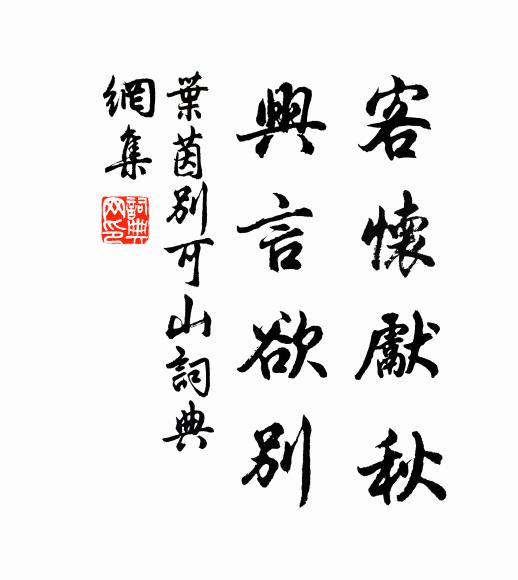 客懷獻秋
興言欲別
葉茵別可山詞典
網集
詞典
网印